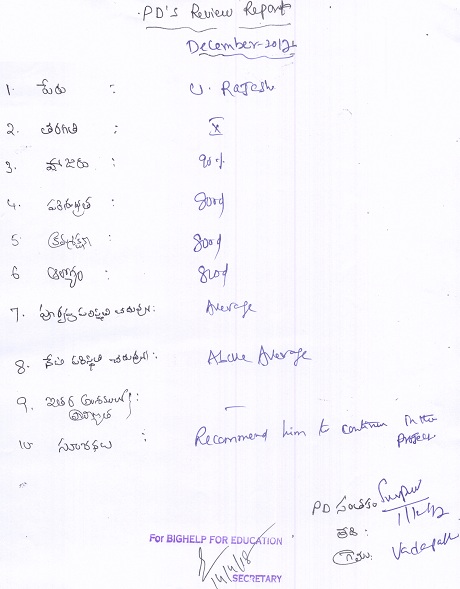 PD's Review Report
December-2012
1. పేరు : U. Rajesh
2. తరగతి : X
3. హాజరు : 90%
4. పరిశుభ్రత : Good
5. క్రమశిక్షణ : Good
6. ఆరోగ్యం : Good
7. పూర్వపు పరిస్థితి చదువులో: Average
8. నేటి పరిస్థితి చదువులో: Above Average
9. ఇతర :
—
10. సూచనలు : Recommend him to continue in the
project
PD సంతకం
1/12/12
తేది :
గ్రామం: Vadapalli
For BIGHELP FOR EDUCATION
14/4/18
SECRETARY